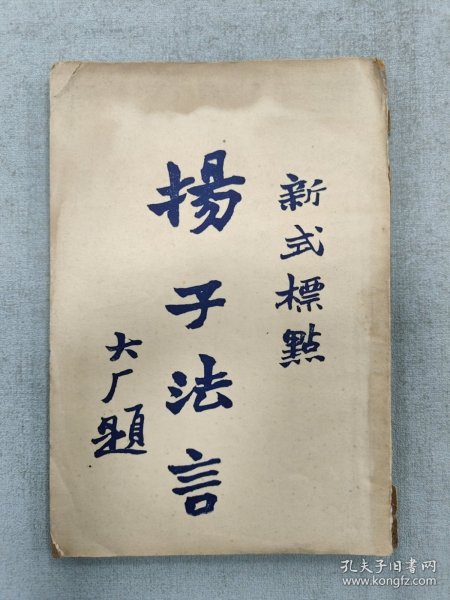 新式標點
揚子法言
大厂題
孔夫子旧书网
www.kongfz.com